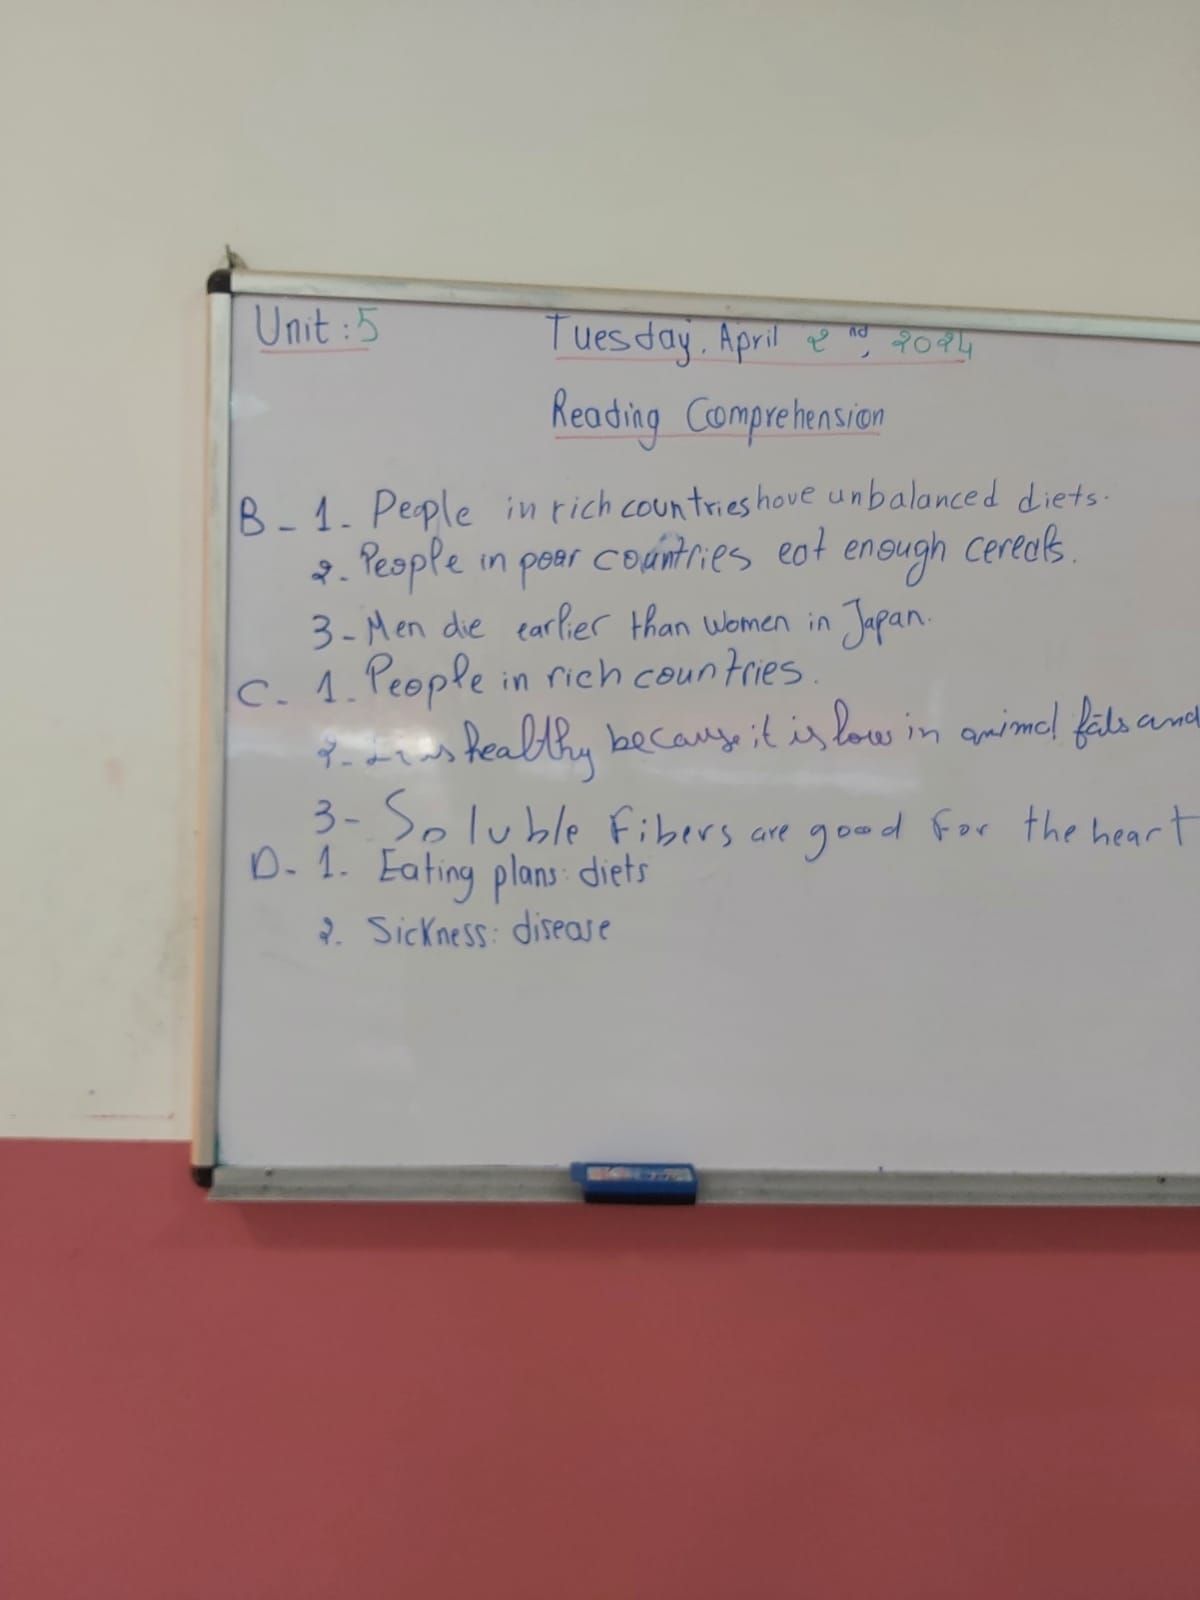 Unit : 5
Tuesday, April 2nd, 2024
Reading Comprehension
B - 1 - People in rich countries have unbalanced diets.
2 - People in poor countries eat enough cereals.
3 - Men die earlier than women in Japan.
C - 1 - People in rich countries.
2 - It is healthy because it is low in animal fats and
3 - Soluble Fibers are good for the heart
D - 1 - Eating plans: diets
2. Sickness: disease